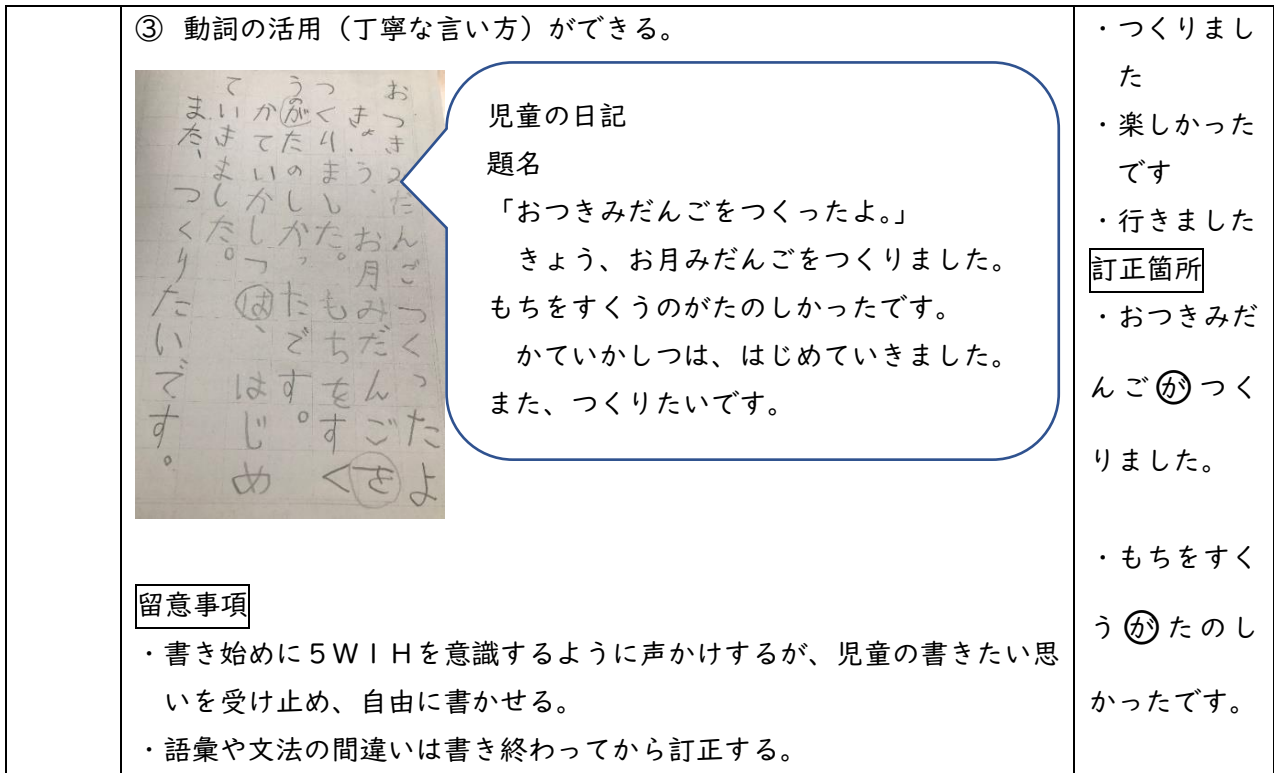 ③ 動詞の活用（丁寧な言い方）ができる。
おつきみだんごつくったよ
きょう、お月みだんごを
つくりました。もちをすく
うのがたのしかったです。
かていかしつは、はじめ
ていきました。
また、つくりたいです。
児童の日記
題名
「おつきみだんごをつくったよ。」
きょう、お月みだんごをつくりました。
もちをすくうのがたのしかったです。
かていかしつは、はじめていきました。
また、つくりたいです。
留意事項
・書き始めに５Ｗ１Ｈを意識するように声かけするが、児童の書きたい思
いを受け止め、自由に書かせる。
・語彙や文法の間違いは書き終わってから訂正する。
・つくりまし
た
・楽しかった
です
・行きました
訂正箇所
・おつきみだ
んごがつく
りました。
・もちをすく
うがたのし
かったです。